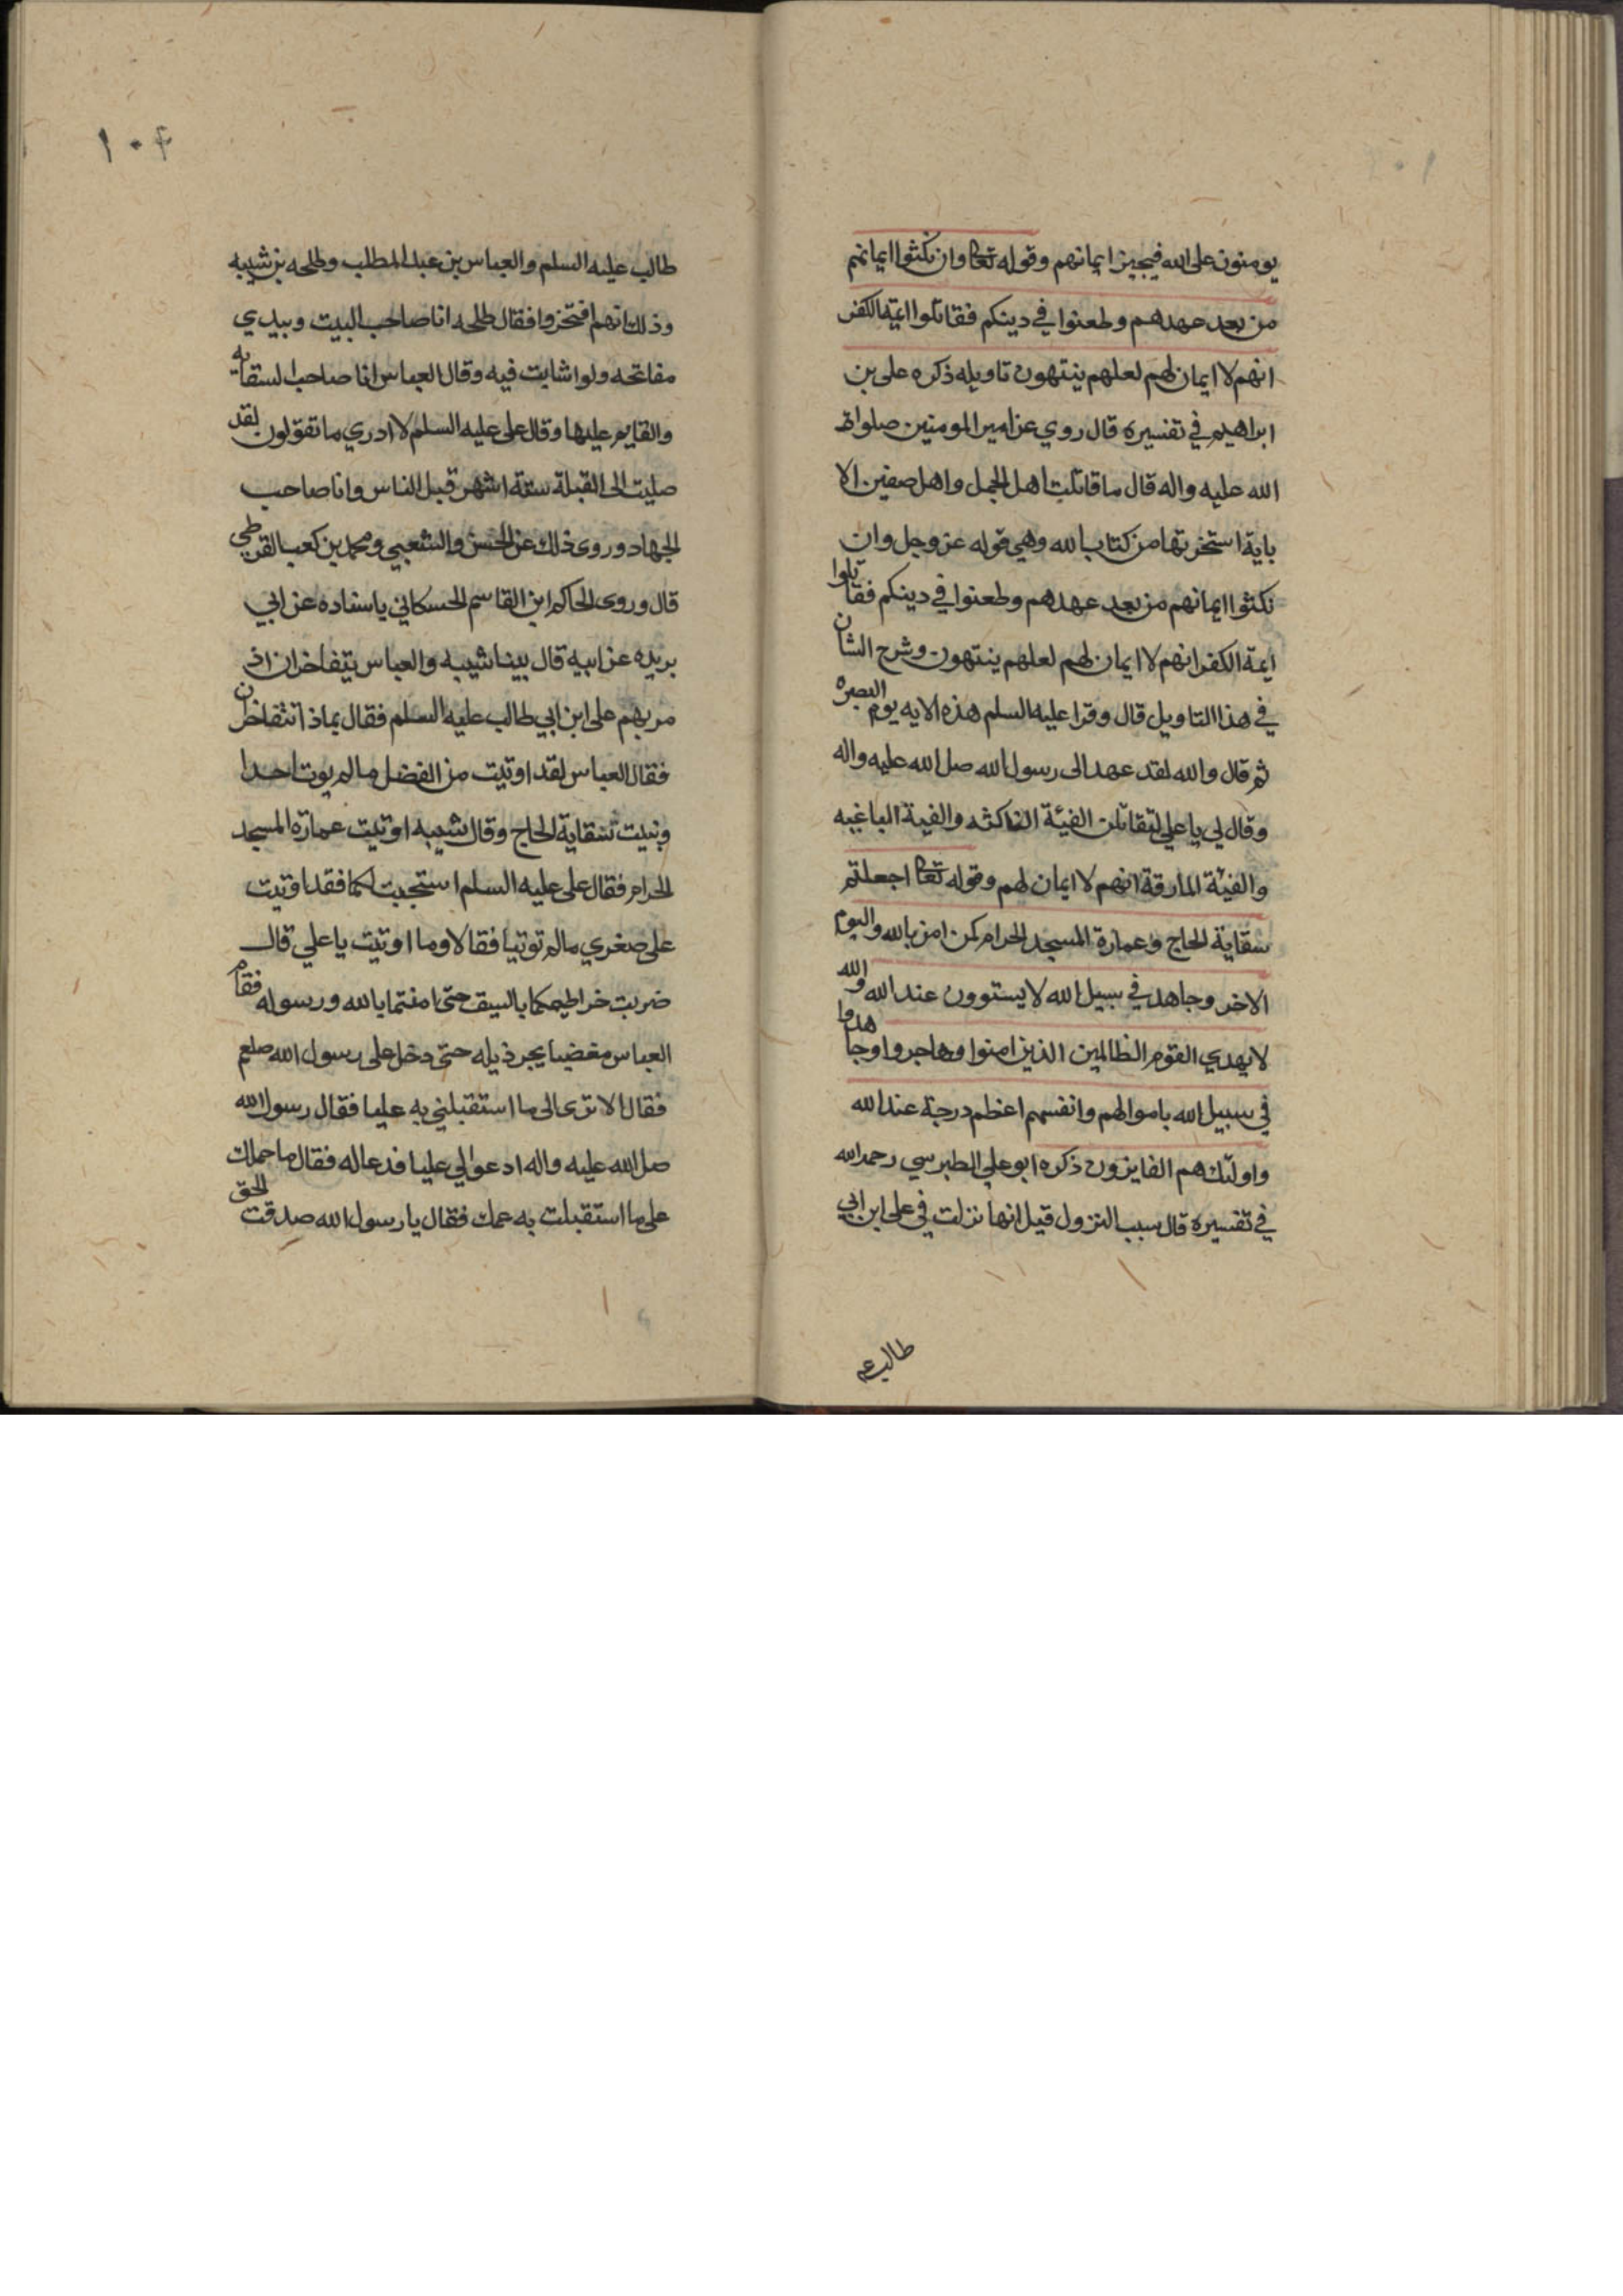 يومنون على الله فيجيز ايمانهم وقوله تعا وان نكثوا ايمانهم
من بعد عهدهم وطعنوا في دينكم فقاتلوا ايمة الكفر
انهم لا ايمان لهم لعلهم ينتهون تاويله ذكره على بن
ابراهيم في تفسيره قال روي عن امير المومنين صلوات
الله عليه واله قال ما قاتلت اهل الجمل واهل صفين الا
باية استخرتها من كتاب الله وهي قوله عز وجل وان
نكثوا ايمانهم من بعد عهدهم وطعنوا في دينكم فقاتلوا
ايمة الكفر انهم لا ايمان لهم لعلهم ينتهون وشرح الشان
في هذا التاويل قال وقرا عليه السلم هذه الايه يوم البصره
ثم قال والله لقد عهد الى رسول الله صل الله عليه واله
وقال لي يا علي لتقاتلن الفيئة الناكثه والفية الباغيه
والفيئة المارقة انهم لا ايمان لهم وقوله تعا اجعلتم
سقاية الحاج وعمارة المسجد الحرام كمن امن بالله واليوم
الاخر وجاهد في سبيل الله لا يستوون عند الله والله
لا يهدي القوم الظالمين الذين امنوا وهاجروا وجاهدوا
في سبيل الله باموالهم وانفسهم اعظم درجة عند الله
واولئك هم الفايزون ذكره ابو علي الطبرسي رحمه الله
في تفسيره قال سبب النزول قيل انها نزلت في على ابن ابي
طالب عم
١٠۴
طالب عليه السلم والعباس بن عبد المطلب وطلحه بن شيبه
وذلك انهم افتخروا فقال طلحه انا صاحب البيت وبيدي
مفاتحه ولو اشا بت فيه وقال العباس انا صاحب السقايه
والقايم عليها وقال على عليه السلم لا ادري ما تقولون لقد
صليت الى القبلة ستة اشهر قبل الناس وانا صاحب
الجهاد وروى ذلك عن الحسن والشعبي ومحمد بن كعب القرظي
قال وروى الحاكم ابن القاسم الحسكاني باسناده عن ابي
بريده عن ابيه قال بينا شيبه والعباس يتفاخران اذ
مر بهم على ابن ابي طالب عليه السلم فقال بماذا تتفاخران
فقال العباس لقد اوتيت من الفضل ما لم يوت احدا
ونيت سقاية الحاج وقال شيبه اوتيت عمارة المسجد
الحرام فقال على عليه السلم استجبت لكما فقد اوتيت
على صغري ما لم توتيا فقالا وما اوتيت يا علي قال
ضربت خراطيمكما بالسيف حتى امنتما بالله ورسوله فقام
العباس مغضبا يجر ذيله حتى دخل على رسول الله صلعم
فقال الا ترى الى ما استقبلني به عليا فقال رسول الله
صل الله عليه واله ادعوا لي عليا فدعا له فقال ما حملك
على ما استقبلت به عمك فقال يا رسول الله صدقت الحق